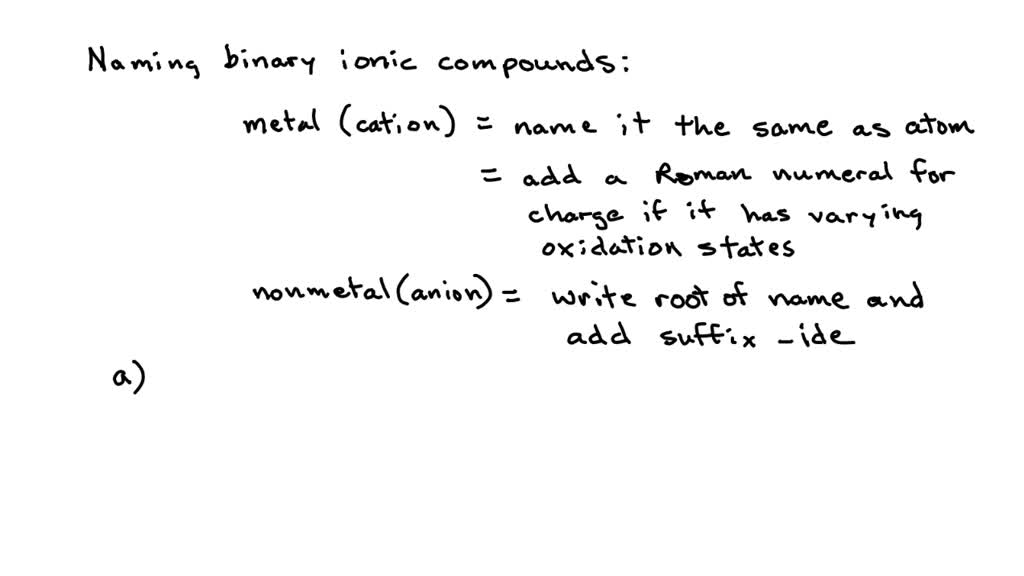 Naming binary ionic compounds:
metal (cation) = name it the same as atom
= add a Roman numeral for
charge if it has varying
oxidation states
nonmetal (anion) = write root of name and
add suffix -ide
a)